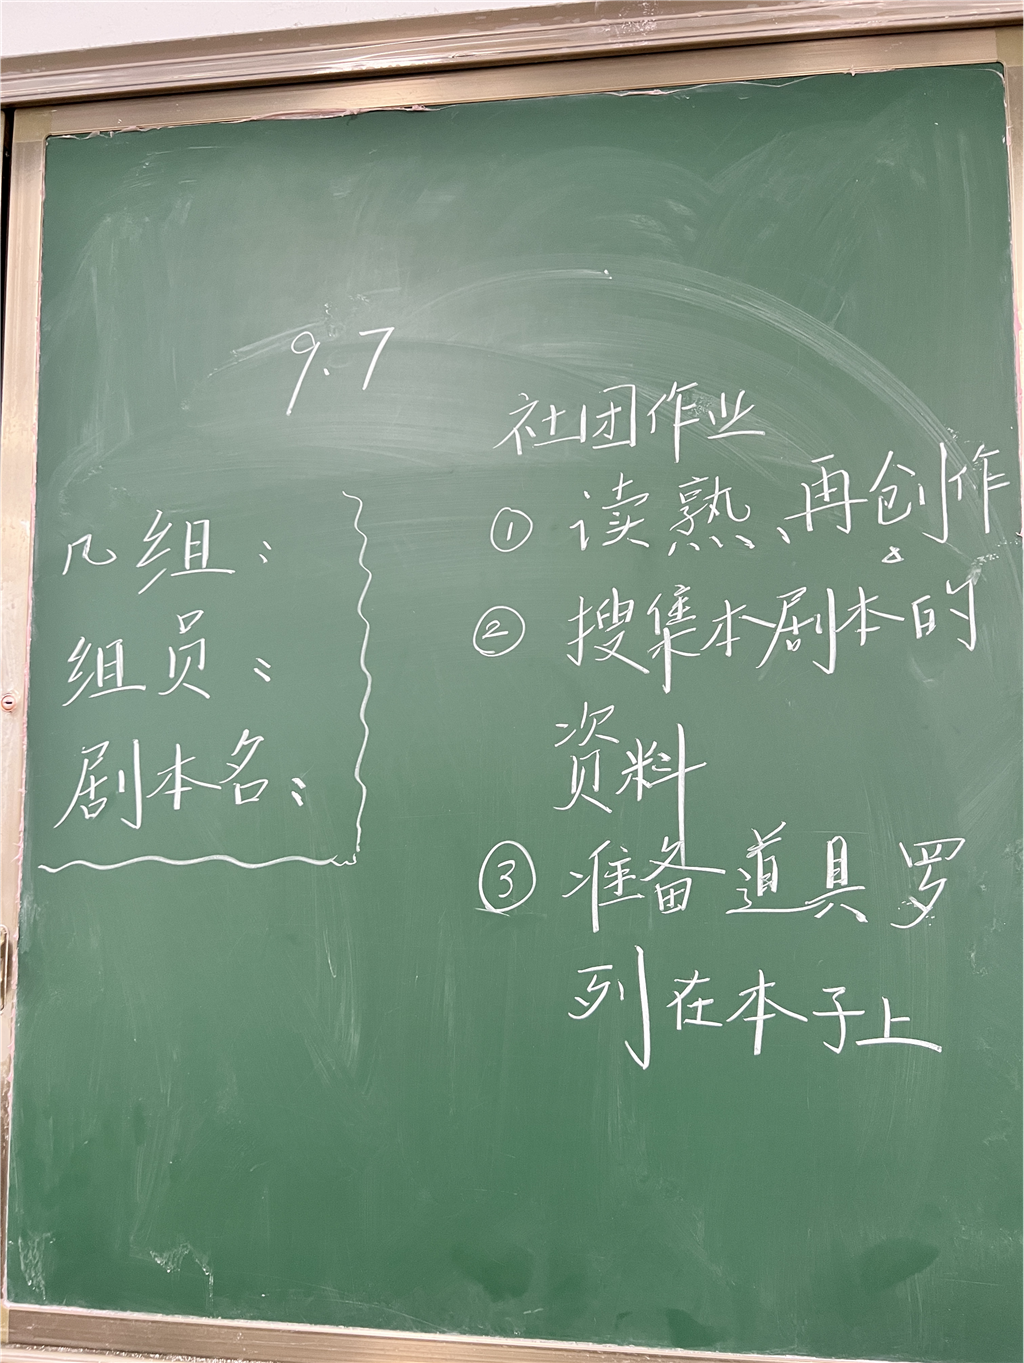 9.7
几组:
组员:
剧本名:
社团作业
① 读熟、再创作
② 搜集本剧本的
资料
③ 准备道具罗
列在本子上